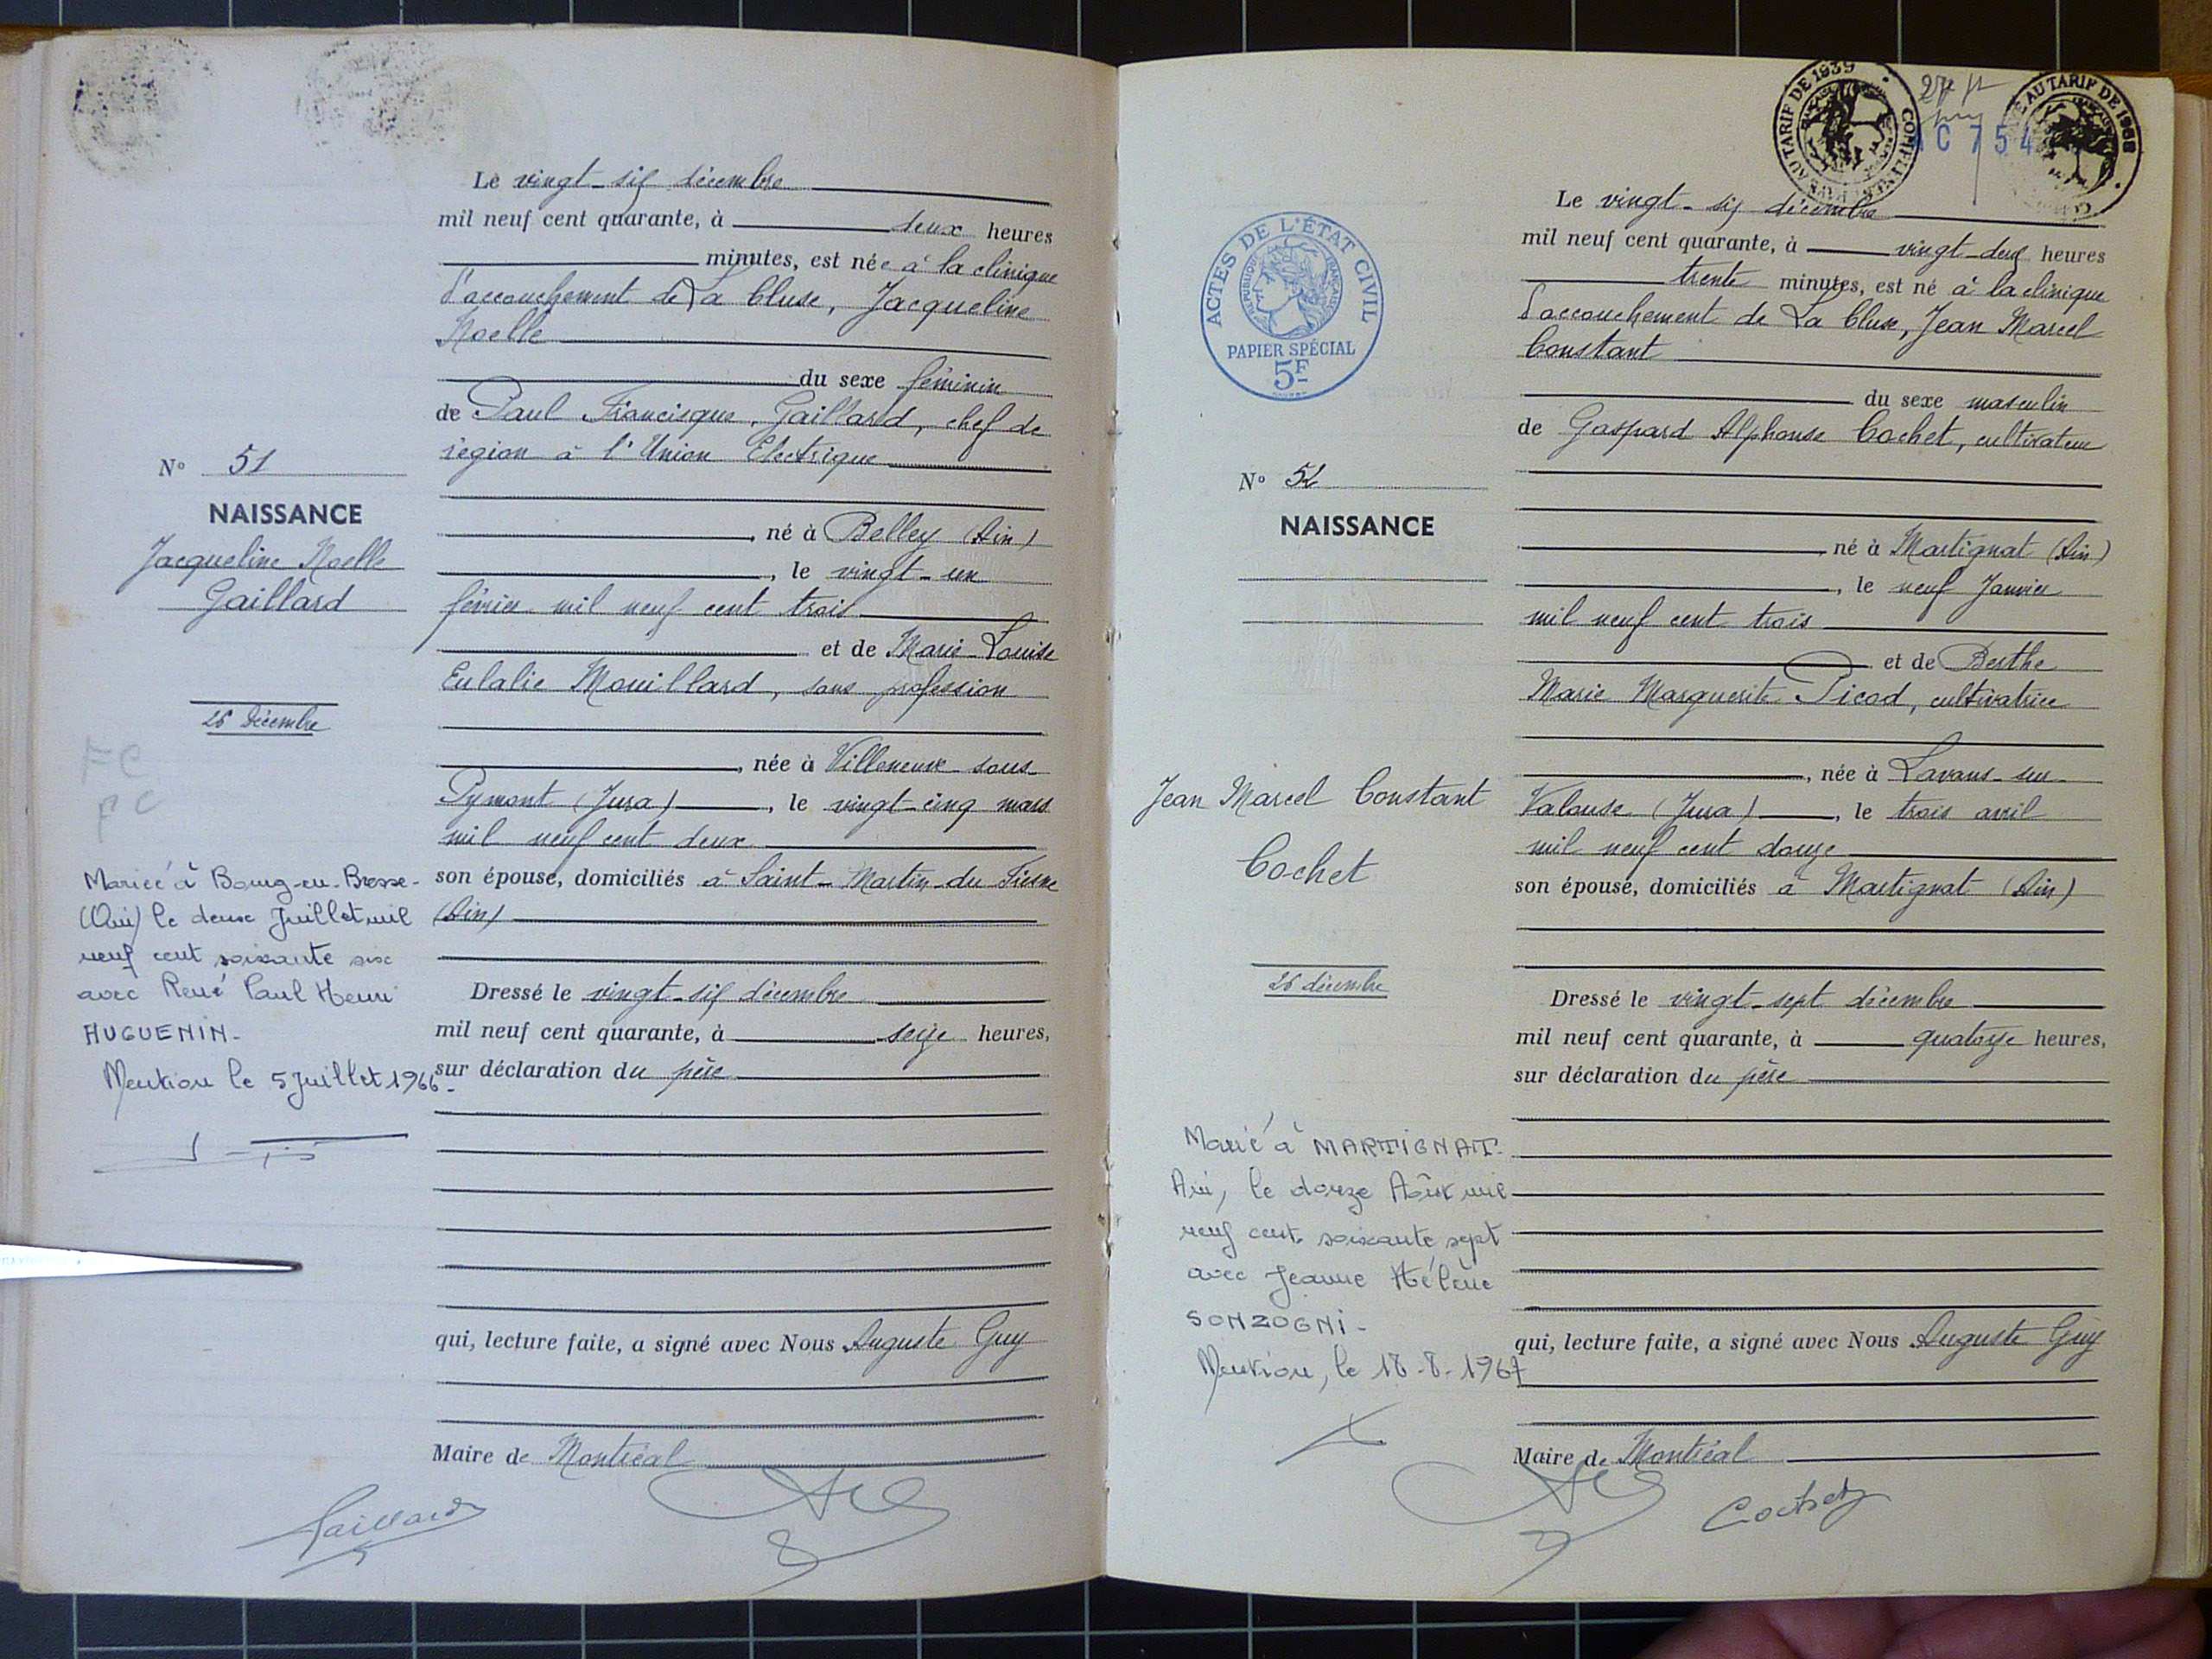 Le vingt-six décembre
mil neuf cent quarante, à deux heures
minutes, est née à la clinique
d'accouchement de La Cluse, Jacqueline
Noelle
du sexe féminin
de Paul Francisque, Gaillard, chef de
région à l'Union Electrique
né à Belley (Ain)
, le vingt-un
février mil neuf cent trois
et de Marie-Louise
Eulalie Mouillard, sans profession
, née à Villeneuve-sous-
Pymont (Jura), le vingt-cinq mars
mil neuf cent deux
son épouse, domiciliés à Saint-Martin-du-Fresne
(Ain)
Dressé le vingt-six décembre
mil neuf cent quarante, à seize heures,
sur déclaration du père
qui, lecture faite, a signé avec Nous Auguste Guy
Maire de Montréal
Gaillard
N° 51
NAISSANCE
Jacqueline Noelle
Gaillard
26 Décembre
FC
FC
Mariée à Bourg-en-Bresse-
(Ain) le deux Juillet mil
neuf cent soixante six
avec René Paul Henri
HUGUENIN-
Mention le 5 Juillet 1966-
AU TARIF DE 1939
C 754
AU TARIF DE 1938
ACTES DE L'ÉTAT CIVIL
RÉPUBLIQUE FRANÇAISE
PAPIER SPÉCIAL
5F
Le vingt-six décembre
mil neuf cent quarante, à vingt-deux heures
trente minutes, est né à la clinique
d'accouchement de La Cluse, Jean Marcel
Constant
du sexe masculin
de Gaspard Alphonse Cochet, cultivateur
né à Martignat (Ain)
, le neuf Janvier
mil neuf cent trois
et de Berthe
Marie Marguerite Picod, cultivatrice
, née à Lavans-sur-
Valouse (Jura), le trois avril
mil neuf cent douze
son épouse, domiciliés à Martignat (Ain)
Dressé le vingt-sept décembre
mil neuf cent quarante, à quatorze heures,
sur déclaration du père
qui, lecture faite, a signé avec Nous Auguste Guy
Maire de Montréal
Cochet
N° 52
NAISSANCE
Jean Marcel Constant
Cochet
26 décembre
Marié à MARTIGNAT-
Ain, le douze Août mil
neuf cent soixante sept
avec Jeanne Hélène
SONZOGNI-
Mention, le 18-8-1967